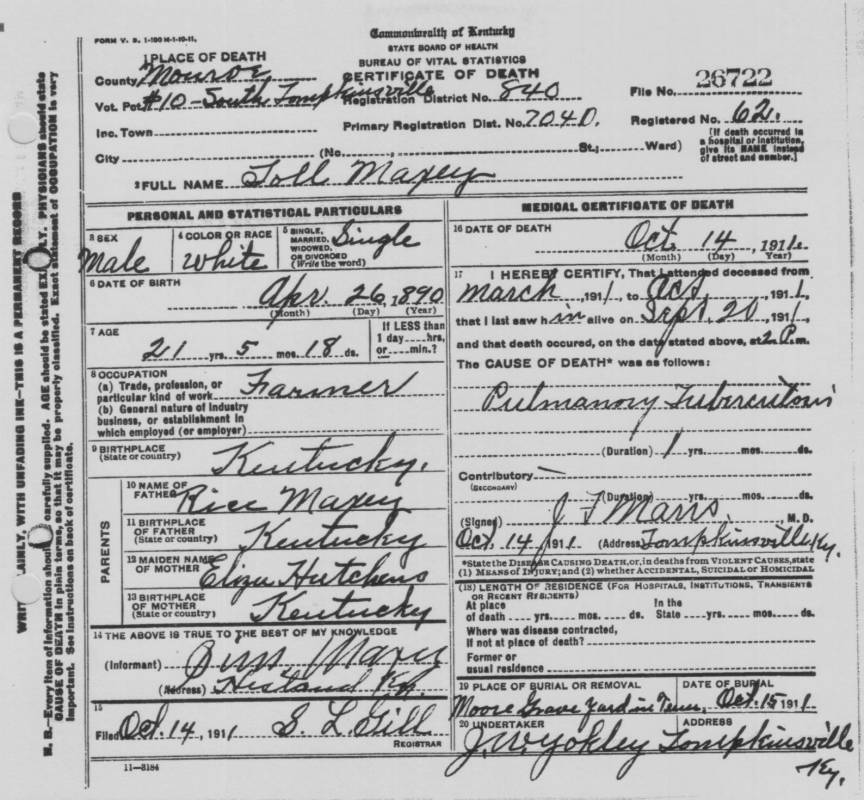 FORM V. S. 1-100 M-1-10-11.
Commonwealth of Kentucky
STATE BOARD OF HEALTH
BUREAU OF VITAL STATISTICS
CERTIFICATE OF DEATH
1 PLACE OF DEATH
County Monroe
Vot. Pct. #10-South Tompkinsville Registration District No. 840
File No. 26722
Inc. Town
Primary Registration Dist. No. 7040.
Registered No. 62.
City (No. , St.; Ward)
[If death occurred in
a hospital or institution,
give its NAME instead
of street and number.]
2 FULL NAME Toll Maxey
PERSONAL AND STATISTICAL PARTICULARS
3 SEX
Male
4 COLOR OR RACE
White
5 SINGLE,
MARRIED,
WIDOWED,
OR DIVORCED
(Write the word)
Single
6 DATE OF BIRTH
Apr. 26, 1890
(Month) (Day) (Year)
7 AGE
21 yrs. 5 mos. 18 ds.
If LESS than
1 day hrs.
or min.?
8 OCCUPATION
(a) Trade, profession, or
particular kind of work Farmer
(b) General nature of industry
business, or establishment in
which employed (or employer)
9 BIRTHPLACE
(State or country) Kentucky.
PARENTS
10 NAME OF
FATHER Rice Maxey
11 BIRTHPLACE
OF FATHER
(State or country) Kentucky
12 MAIDEN NAME
OF MOTHER Eliza Hutchens
13 BIRTHPLACE
OF MOTHER
(State or country) Kentucky
14 THE ABOVE IS TRUE TO THE BEST OF MY KNOWLEDGE
(Informant) Jim Maxey
(Address) Hestand Ky.
15
Filed Oct. 14, 1911 S. L. Gill
REGISTRAR
11-3184
MEDICAL CERTIFICATE OF DEATH
16 DATE OF DEATH
Oct. 14, 1911.
(Month) (Day) (Year)
17 I HEREBY CERTIFY, That I attended deceased from
March, 1911 to Oct, 1911,
that I last saw him alive on Sept. 20, 1911,
and that death occured, on the date stated above, at 2 P.m.
The CAUSE OF DEATH* was as follows:
Pulmanory
(Duration) 1 yrs. mos. ds.
Contributory —
(SECONDARY)
(Duration) yrs. mos. ds.
(Signed) J F Marrs. M. D.
Oct. 14, 1911 (Address) Tompkinsville Ky.
*State the DISEASE CAUSING DEATH, or, in deaths from VIOLENT CAUSES, state
(1) MEANS OF INJURY; and (2) whether ACCIDENTAL, SUICIDAL OR HOMICIDAL
(18) LENGTH OF RESIDENCE (FOR HOSPITALS, INSTITUTIONS, TRANSIENTS
OR RECENT RESIDENTS)
At place In the
of death yrs. mos. ds. State yrs. mos. ds.
Where was disease contracted,
If not at place of death?
Former or
usual residence
19 PLACE OF BURIAL OR REMOVAL
Moore Grave Yard in Tenn.
DATE OF BURIAL
Oct. 15 1911
20 UNDERTAKER
J. W. Yokley
ADDRESS
Tompkinsville
Ky.
N. B.—Every item of information should carefully supplied. AGE should be stated EXACTLY. PHYSICIANS should state
CAUSE OF DEATH in plain terms, so that it may be properly classified. Exact statement of OCCUPATION is very
important. See instructions on back of certificate.
WRITE PLAINLY, WITH UNFADING INK—THIS IS A PERMANENT RECORD